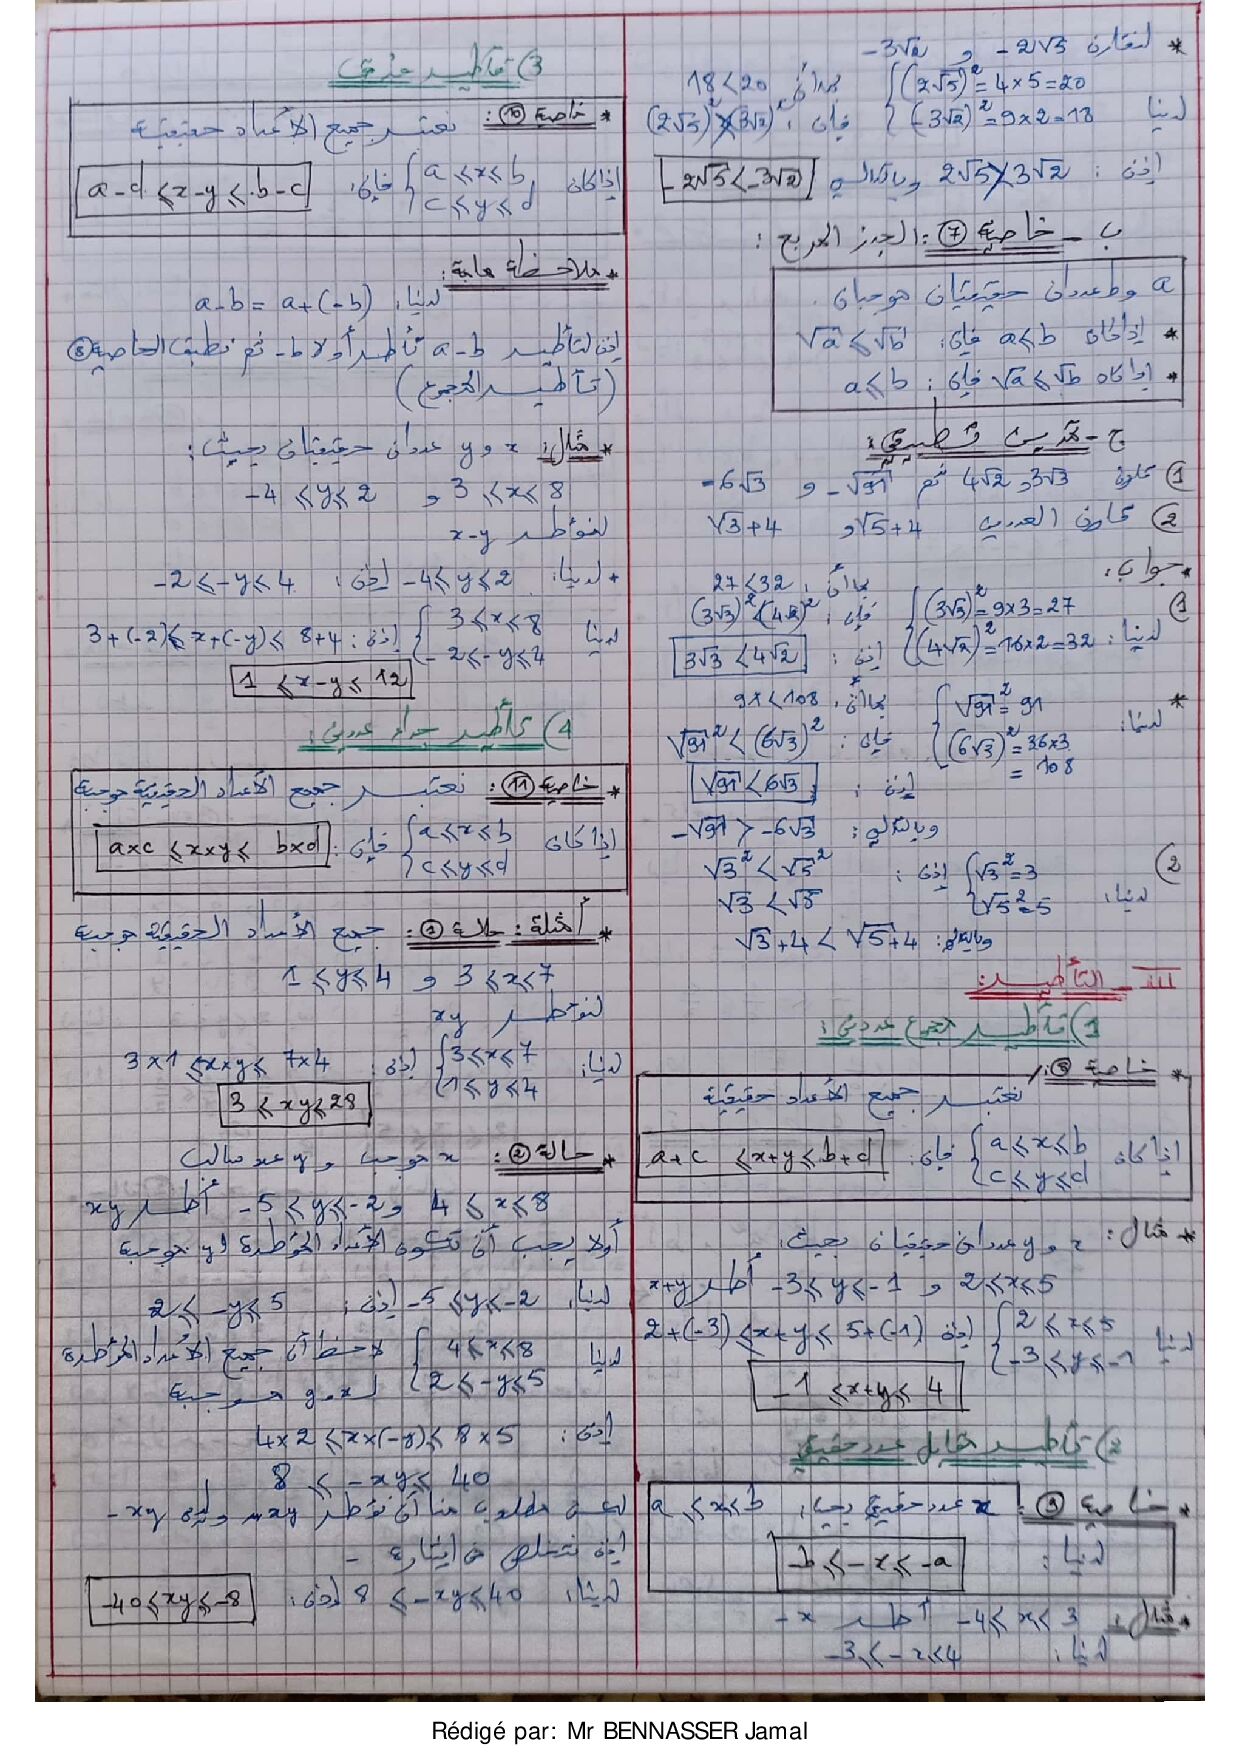 * لنقارن -2√5 و -3√2
لدينا { (2√5)² = 4×5 = 20 بما أن 18<20
(-3√2)² = 9×2 = 18 فإن:
إذن: 2√5 > 3√2 وبالتالي -2√5 < -3√2
ب - خاصية ⑦: الجذر المربع:
a و b عددان حقيقيان موجبان.
* إذا كان a⩽b فإن: √a ⩽ √b
* إذا كان √a ⩽ √b فإن: a⩽b
ج - تمرين تطبيقي:
1) قارن 3√3 و 4√2 ثم -√91 و -6√3
2) قارن العددين √5+4 و √3+4
* جواب:
1) لدينا: { (3√3)² = 9×3 = 27 بما أن: 27<32
(4√2)² = 16×2 = 32 فإن: (3√3)² < (4√2)²
إذن: 3√3 < 4√2
* لدينا: { √91² = 91 بما أن: 91<108
(6√3)² = 36×3 = 108 فإن: √91² < (6√3)²
إذن: √91 < 6√3
وبالتالي: -√91 > -6√3
2) لدينا: { √3² = 3 إذن: √3² < √5²
√5² = 5 √3 < √5
وبالتالي: √3+4 < √5+4
III - التأطير:
1) تأطير مجموع عددين:
* خاصية ⑧:
نعتبر جميع الأعداد حقيقية
إذا كان { a⩽x⩽b
c⩽y⩽d فإن: a+c ⩽ x+y ⩽ b+d
* مثال: x و y عددان حقيقيان بحيث:
2⩽x⩽5 و -3⩽y⩽-1 أطر x+y
لدينا { 2⩽x⩽5
-3⩽y⩽-1 إذن 2+(-3) ⩽ x+y ⩽ 5+(-1)
-1 ⩽ x+y ⩽ 4
2) تأطير مقابل عدد حقيقي
* خاصية ⑨: x عدد حقيقي بحيث: a⩽x⩽b
لدينا: -b ⩽ -x ⩽ -a
* مثال: -4⩽x⩽3 أطر -x
لدينا: -3⩽-x⩽4
3) تأطير فرق
* خاصية ⑩: نعتبر جميع الأعداد حقيقية
إذا كان { a⩽x⩽b
c⩽y⩽d فإن: a-d ⩽ x-y ⩽ b-c
* ملاحظة هامة:
لدينا: a-b = a+(-b)
إذن لتأطير a-b نأطر أولا -b ثم نطبق الخاصية ⑧
(تأطير المجموع)
* مثال: x و y عددان حقيقيان بحيث:
3⩽x⩽8 و -4⩽y⩽2
لنؤطر x-y
* لدينا: -4⩽y⩽2 إذن: -2⩽-y⩽4
لدينا { 3⩽x⩽8
-2⩽-y⩽4 إذن: 3+(-2) ⩽ x+(-y) ⩽ 8+4
1 ⩽ x-y ⩽ 12
4) تأطير جداء عددين:
* خاصية ⑪: نعتبر جميع الأعداد الحقيقية موجبة
إذا كان { a⩽x⩽b
c⩽y⩽d فإن: a×c ⩽ x×y ⩽ b×d
* أمثلة: حالة ①: جميع الأعداد الحقيقية موجبة
3⩽x⩽7 و 1⩽y⩽4
لنؤطر xy
لدينا: { 3⩽x⩽7
1⩽y⩽4 إذن: 3×1 ⩽ x×y ⩽ 7×4
3 ⩽ xy ⩽ 28
* حالة ②: x موجب و y عدد سالب
4⩽x⩽8 و -5⩽y⩽-2 أطر xy
أولا يجب أن تكون الأعداد المؤطرة لـ y موجبة
لدينا: -5⩽y⩽-2 إذن: 2⩽-y⩽5
لدينا { 4⩽x⩽8 لاحظ أن جميع الأعداد المؤطرة
2⩽-y⩽5 لـ x و y موجبة
إذن: 4×2 ⩽ x×(-y) ⩽ 8×5
8 ⩽ -xy ⩽ 40
مطلوب منا أن نؤطر xy وليس -xy
إذن نتخلص من إشارة -
لدينا: 8 ⩽ -xy ⩽ 40 إذن: -40⩽xy⩽-8
Rédigé par: Mr BENNASSER Jamal